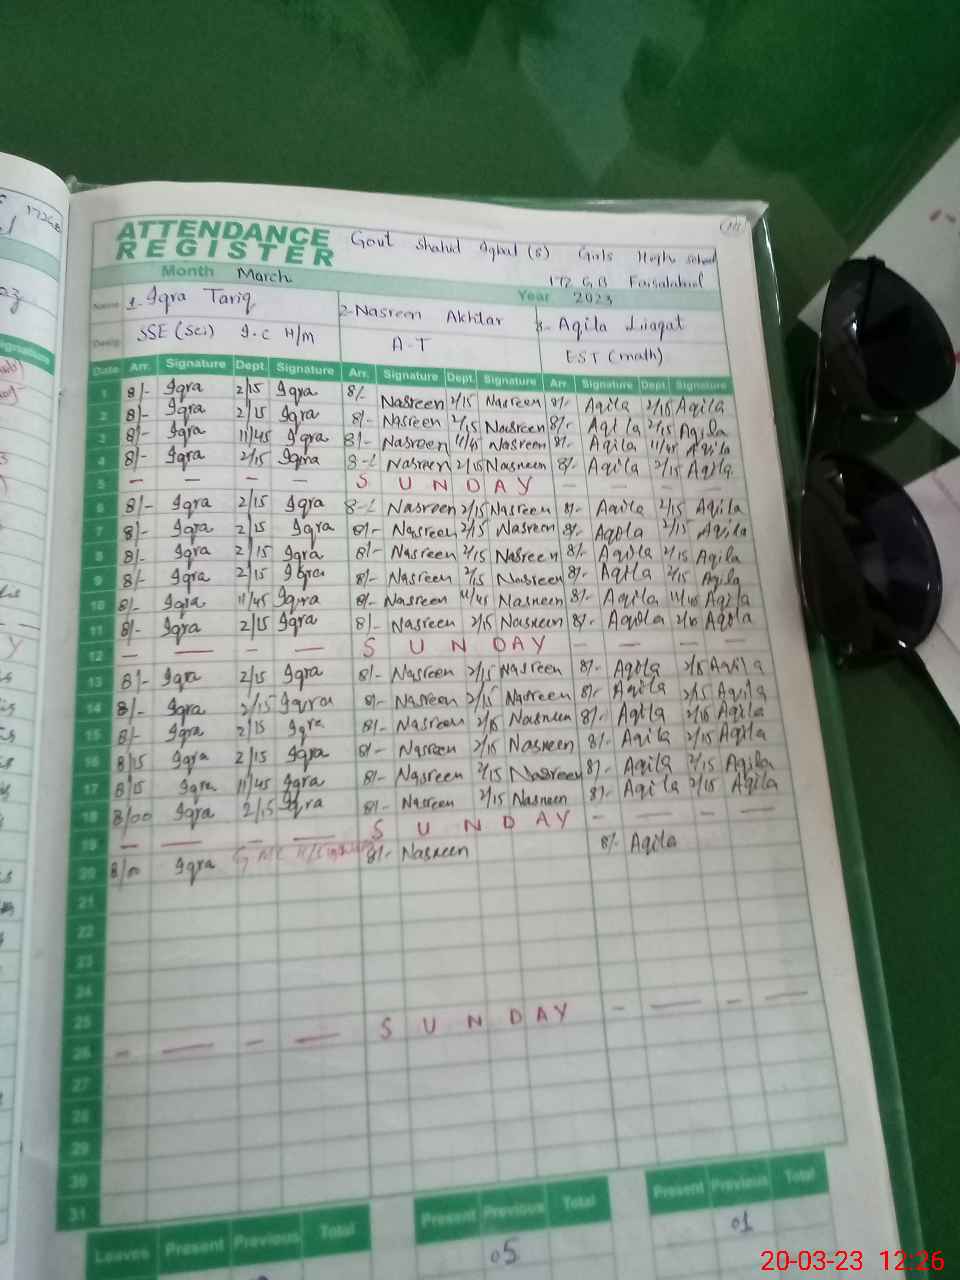 ATTENDANCE REGISTER Govt Shahid Iqbal (S) Girls High School
Month March 172 G.B Faisalabad
Year 2023
Name 1- Iqra Tariq 2- Nasreen Akhtar 3- Aqila Liaqat
Desig. SSE (Sci) I.C H/M A-T EST (math)
Date Arr. Signature Dept. Signature Arr. Signature Dept. Signature Arr. Signature Dept. Signature
1 8/- Iqra 2/15 Iqra 8/- Nasreen 2/15 Nasreen 8/- Aqila 2/15 Aqila
2 8/- Iqra 2/15 Iqra 8/- Nasreen 2/15 Nasreen 8/- Aqila 2/15 Aqila
3 8/- Iqra 11/45 Iqra 8/- Nasreen 11/45 Nasreen 8/- Aqila 11/45 Aqila
4 8/- Iqra 2/15 Iqra 8-/ Nasreen 2/15 Nasreen 8/- Aqila 2/15 Aqila
5 — — — — S U N D A Y — — — —
6 8/- Iqra 2/15 Iqra 8-/ Nasreen 2/15 Nasreen 8/- Aqila 2/15 Aqila
7 8/- Iqra 2/15 Iqra 8/- Nasreen 2/15 Nasreen 8/- Aqila 2/15 Aqila
8 8/- Iqra 2/15 Iqra 8/- Nasreen 2/15 Nasreen 8/- Aqila 2/15 Aqila
9 8/- Iqra 2/15 Iqra 8/- Nasreen 2/15 Nasreen 8/- Aqila 2/15 Aqila
10 8/- Iqra 11/45 Iqra 8/- Nasreen 11/45 Nasreen 8/- Aqila 11/45 Aqila
11 8/- Iqra 2/15 Iqra 8/- Nasreen 2/15 Nasreen 8/- Aqila Aqila
12 — — — — S U N D A Y — — — —
13 8/- Iqra 2/15 Iqra 8/- Nasreen 2/15 Nasreen 8/- Aqila 2/15 Aqila
14 8/- Iqra 2/15 Iqra 8/- Nasreen 2/15 Nasreen 8/- Aqila 2/15 Aqila
15 8/- Iqra 2/15 Iqra 8/- Nasreen 2/15 Nasreen 8/- Aqila 2/15 Aqila
16 8/15 Iqra 2/15 Iqra 8/- Nasreen 2/15 Nasreen 8/- Aqila 2/15 Aqila
17 8/15 Iqra 11/45 Iqra 8/- Nasreen 2/15 Nasreen 8/- Aqila 2/15 Aqila
18 8/00 Iqra 2/15 Iqra 8/- Nasreen 2/15 Nasreen 8/- Aqila 2/15 Aqila
19 — — — — S U N D A Y — — — —
20 8/00 Iqra 8/- Nasreen 8/- Aqila
21
22
23
24
25
26 — — — — S U N D A Y — — — —
27
28
29
30
31
Leaves Present Previous Total Present Previous Total Present Previous Total
05 01
20-03-23 12:26